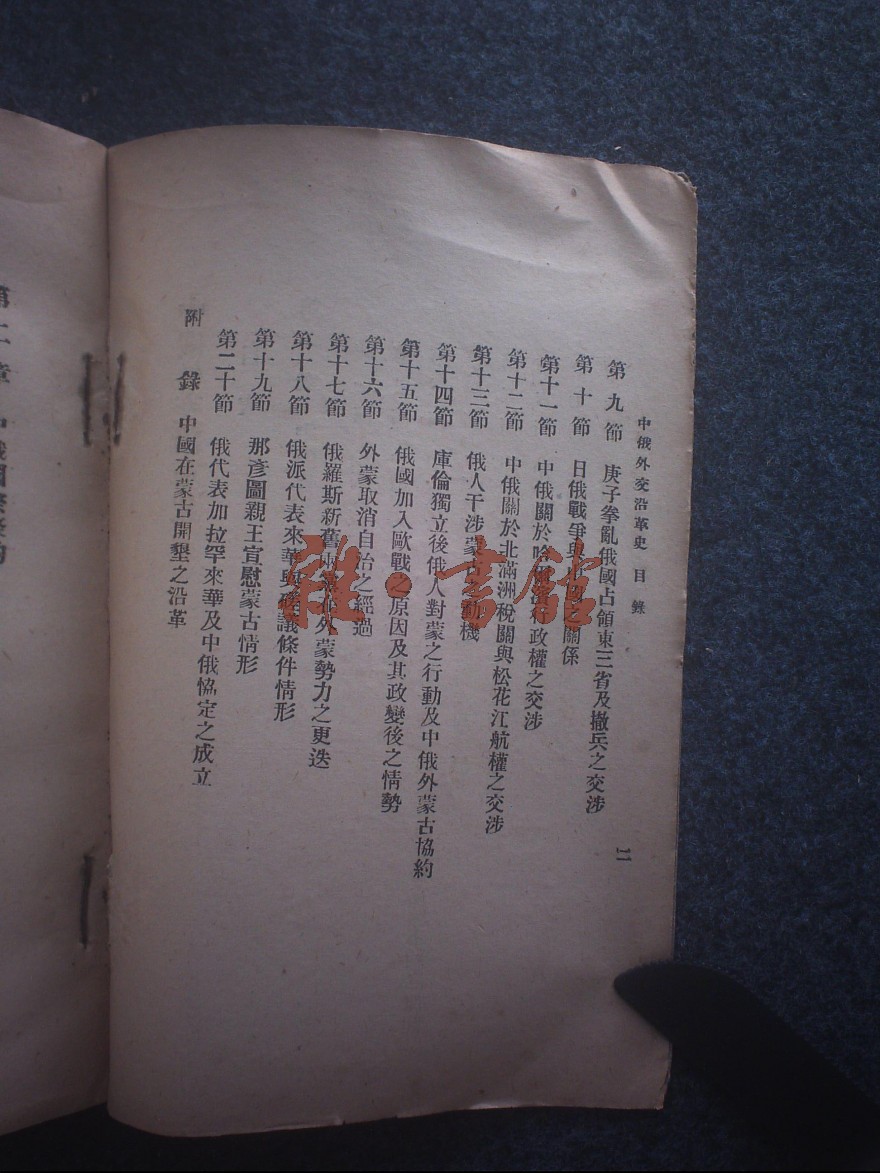 中俄外交沿革史 目錄
二
第九節 庚子拳亂俄國占領東三省及撤兵之交涉
第十節 日俄戰爭與中國之關係
第十一節 中俄關於哈爾濱行政權之交涉
第十二節 中俄關於北滿洲稅關與松花江航權之交涉
第十三節 俄人干涉蒙古動機
第十四節 庫倫獨立後俄人對蒙之行動及中俄外蒙古協約
第十五節 俄國加入歐戰之原因及其政變後之情勢
第十六節 外蒙取消自治之經過
第十七節 俄羅斯新舊兩黨外蒙勢力之更迭
第十八節 俄派代表來華與議條件情形
第十九節 那彥圖親王宣慰蒙古情形
第二十節 俄代表加拉罕來華及中俄恊定之成立
附錄 中國在蒙古開墾之沿革
雜·書館